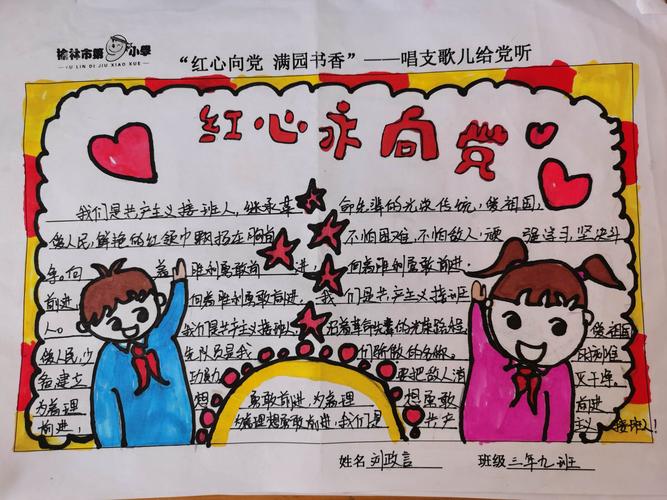 榆林市第 小学
YU LIN DI JIU XIAO XUE
“红心向党 满园书香”——唱支歌儿给党听
红心永向党
我们是共产主义接班人,继承革 命先辈的光荣传统,爱祖国,
爱人民,鲜艳的红领巾飘扬在胸前 不怕困难,不怕敌人,顽 强学习,坚决斗
争。向 着胜利勇敢前 进, 向着胜利勇敢前进,
前进 向着胜利勇敢前进,我 们是共产主义接班
人。 我们是共产主义接班人 沿着革命先辈的光荣路程, 爱祖国
爱人民,少 先队员是我 们骄傲的名称。 时刻准
备建立 功勋 要把敌人消 灭干净。
为着理 想 勇敢前进,为着理 想勇敢 前进
前进; 为着理想勇敢前进,我们是 共产 主义 接班人!
姓名 刘政言 班级 三年九班